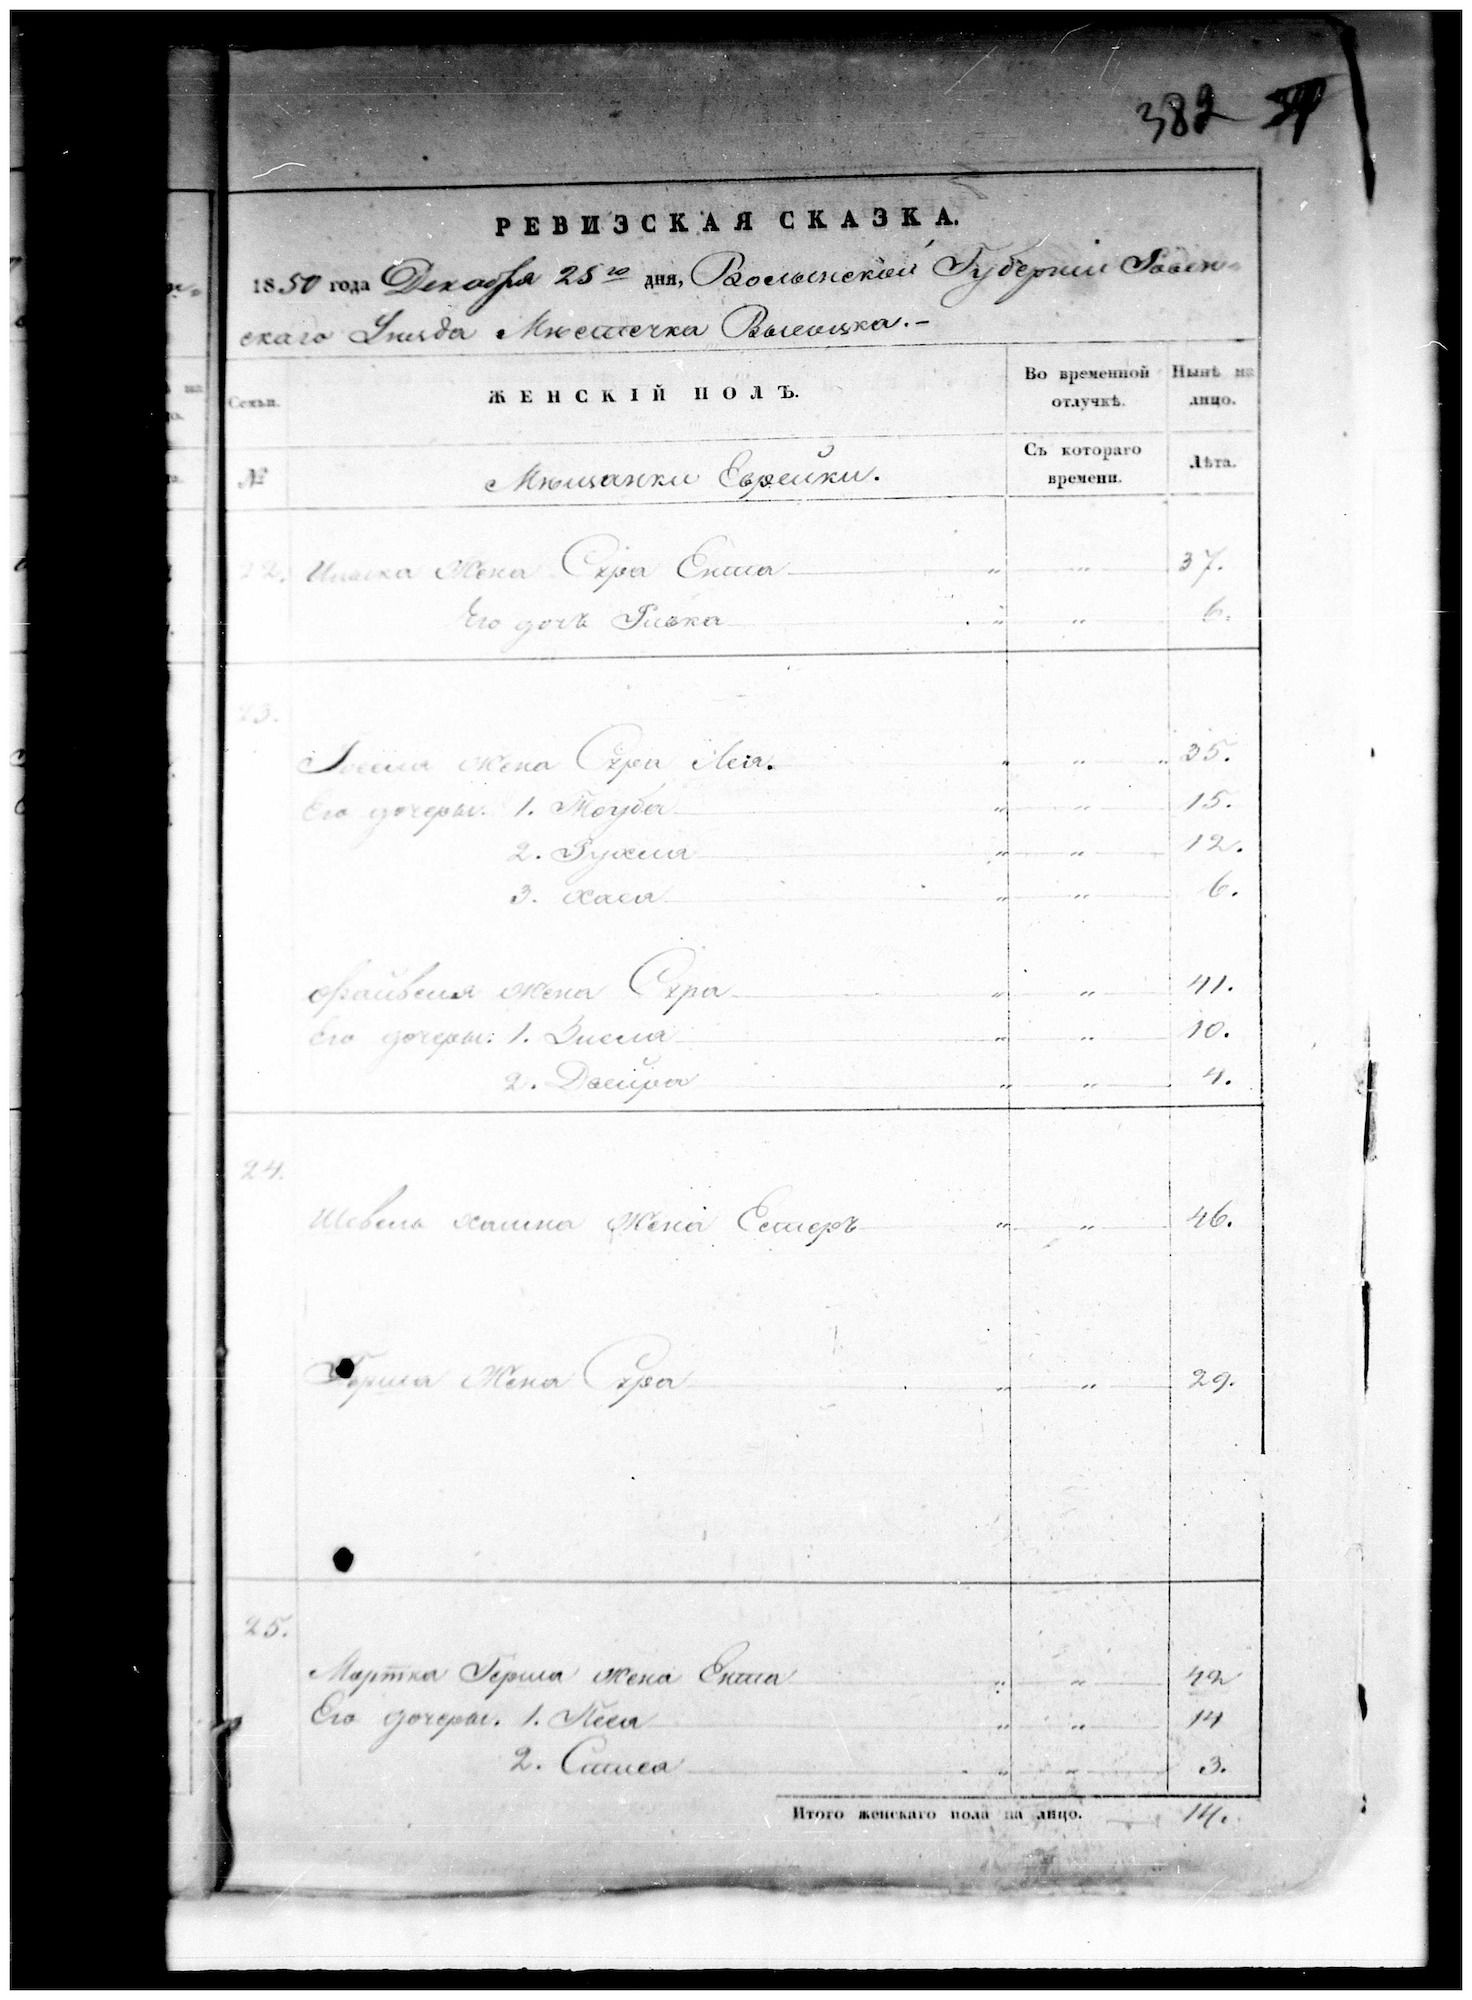 382
РЕВИЗСКАЯ СКАЗКА.
1850 года Декабря 25го дня, Волынской Губернiи Ровен-
скаго Уѣзда Мѣстечка Высоцка.-
Семьи. ЖЕНСКІЙ ПОЛЪ. Во временной отлучкѣ. Нынѣ на лицо.
№ Мѣщанки Еврейки. Съ котораго времени. Лѣта.
22. Ицька жена Сура Ента " " 37.
Его дочь Ривка " " 6.
23.
Жена Сура Леа. " " " 35.
Его дочери. 1. Тоуба " " 15.
2. Рухля " " 12.
3. Хася " " 6.
Файвеля жена Сура " " 41.
Его дочери: 1. Зисля " " 10.
2. Двейра " " 4.
24.
Шевель жена Естеръ " " 46.
Герша жена Сура " " 29.
25.
Мортка Герша жена Ента " " 42
Его дочери. 1. Песя " " 14
2. " " 3.
Итого женскаго пола на лицо. 14.